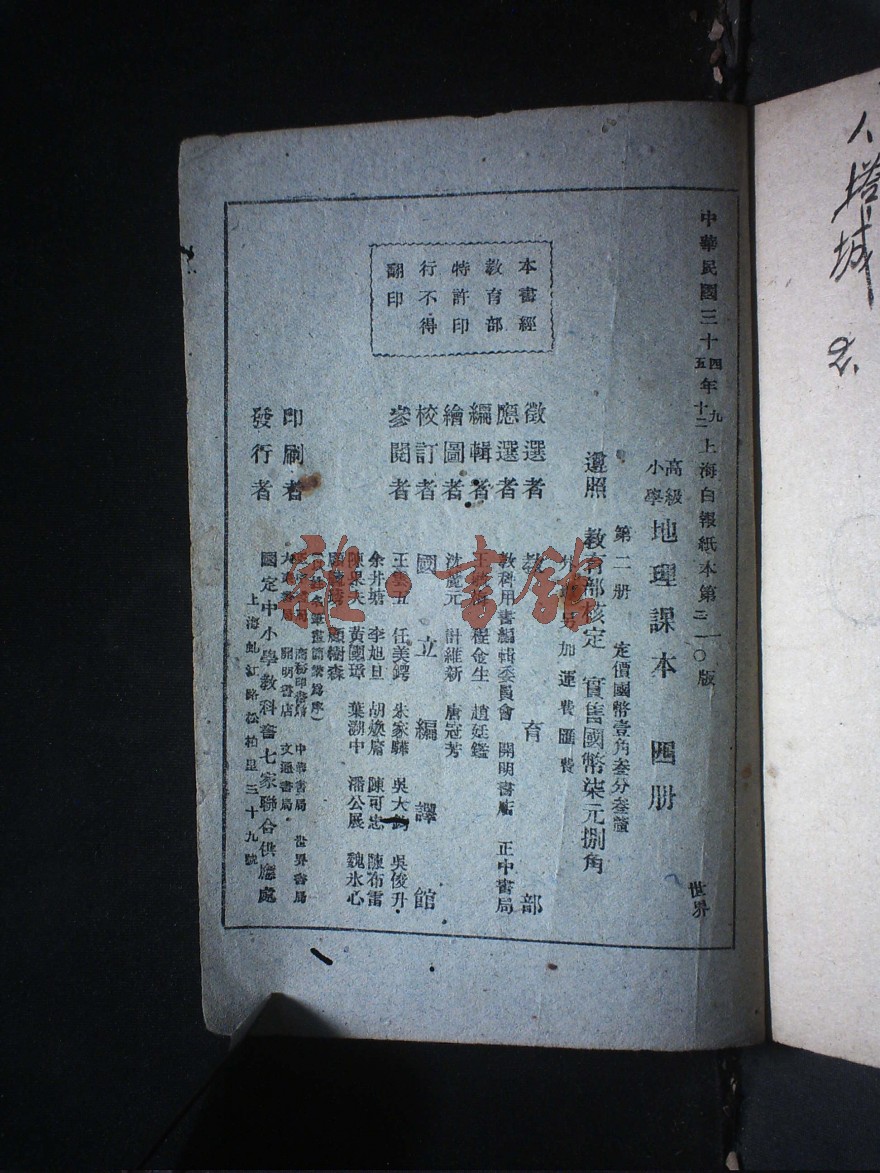 中華民國三十四年九上海白報紙本第一版
五 十二 三一〇
高級小學 地理課本 四册
第二册 定價國幣壹角叁分叁釐
遵照教育部核定 實售國幣柒元捌角
外埠另加運費匯費
徵選者 教育部
應選者 教科用書編輯委員會 開明書店 正中書局
編輯者 程金生 趙廷鑑
繪圖者 計維新 唐冠芳
校訂者 國立編譯館
參閱者 王集五 任美鍔 朱家驊 吳大鈞 吳俊升
余井塘 李旭旦 胡煥庸 陳可忠 陳布雷
陳果夫 黃國璋 葉溯中 潘公展 魏冰心
顧樹森
印刷者 商務印書館 中華書局 世界書局
大東書局 開明書店 文通書局
發行者 國定中小學教科書七家聯合供應處
上海虬江路松柏里三十九號
本書經
教育部
特許印
行不得
翻印
世界
雜·書館
塔城